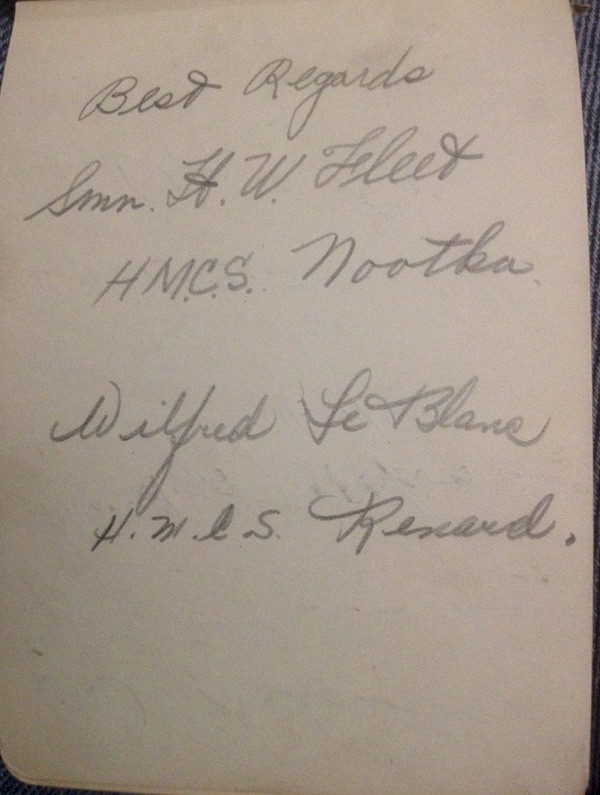 Best Regards
Smn. H. W. Fleet
H.M.C.S. Nootka.
Wilfred Le Blanc
H.M.C.S. Renard.